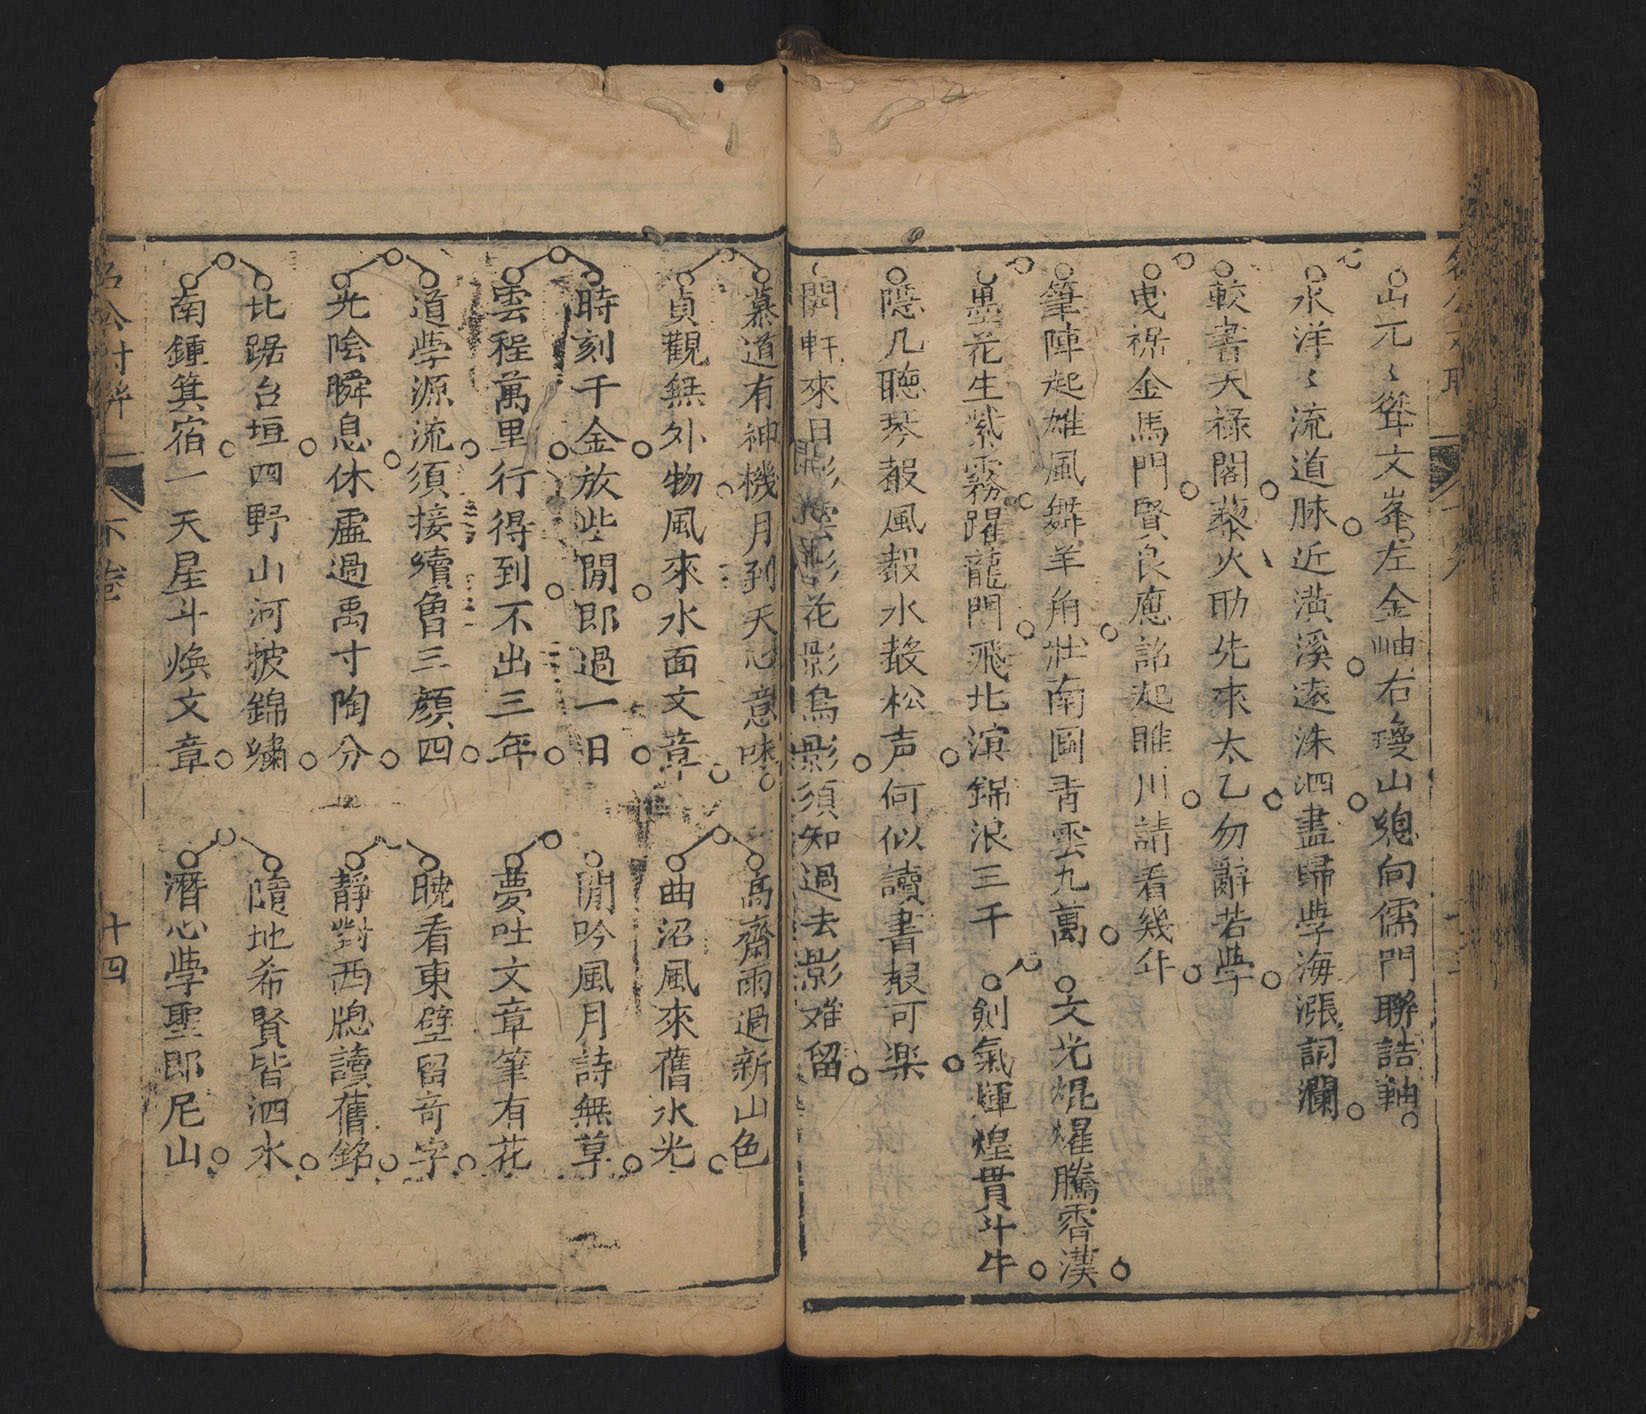 山元〻聳文峯左金岫右瓊山總向儒門聯誥軸
水洋〻流道脉近潢溪遠洙泗盡歸斈海漲詞瀾
較書天禄閣藜火助先來太乙勿辭若斈
曳裾金馬門賢良應詔起睢川請看幾年
筆陣起雄風舞羊角壯南圖青雲九萬 文光焜燿騰霄漢
墨花生紫霧躍龍門飛北溟錦浪三千 劍氣煇煌貫斗牛
隱几聴琴聲風聲水聲松声何似讀書聲可楽
開軒來日影雲影花影鳥影須知過去影难留
慕道有神機月到天心意味 高齋雨過新山色
貞觀無外物風來水面文章 曲沼風來舊水光
時刻千金放些閒郎過一日 閒吟風月詩無草
雲程萬里行得到不出三年 夢吐文章筆有花
道斈源流須接續魯三顏四 晩看東壁留奇字
光陰瞬息休虛過禹寸陶分 靜對西牎讀舊銘
北踞台垣四野山河披錦繡 隨地希賢皆泗水
南鍾箕宿一天星斗煥文章 潛心斈聖即尼山
下卷
十四